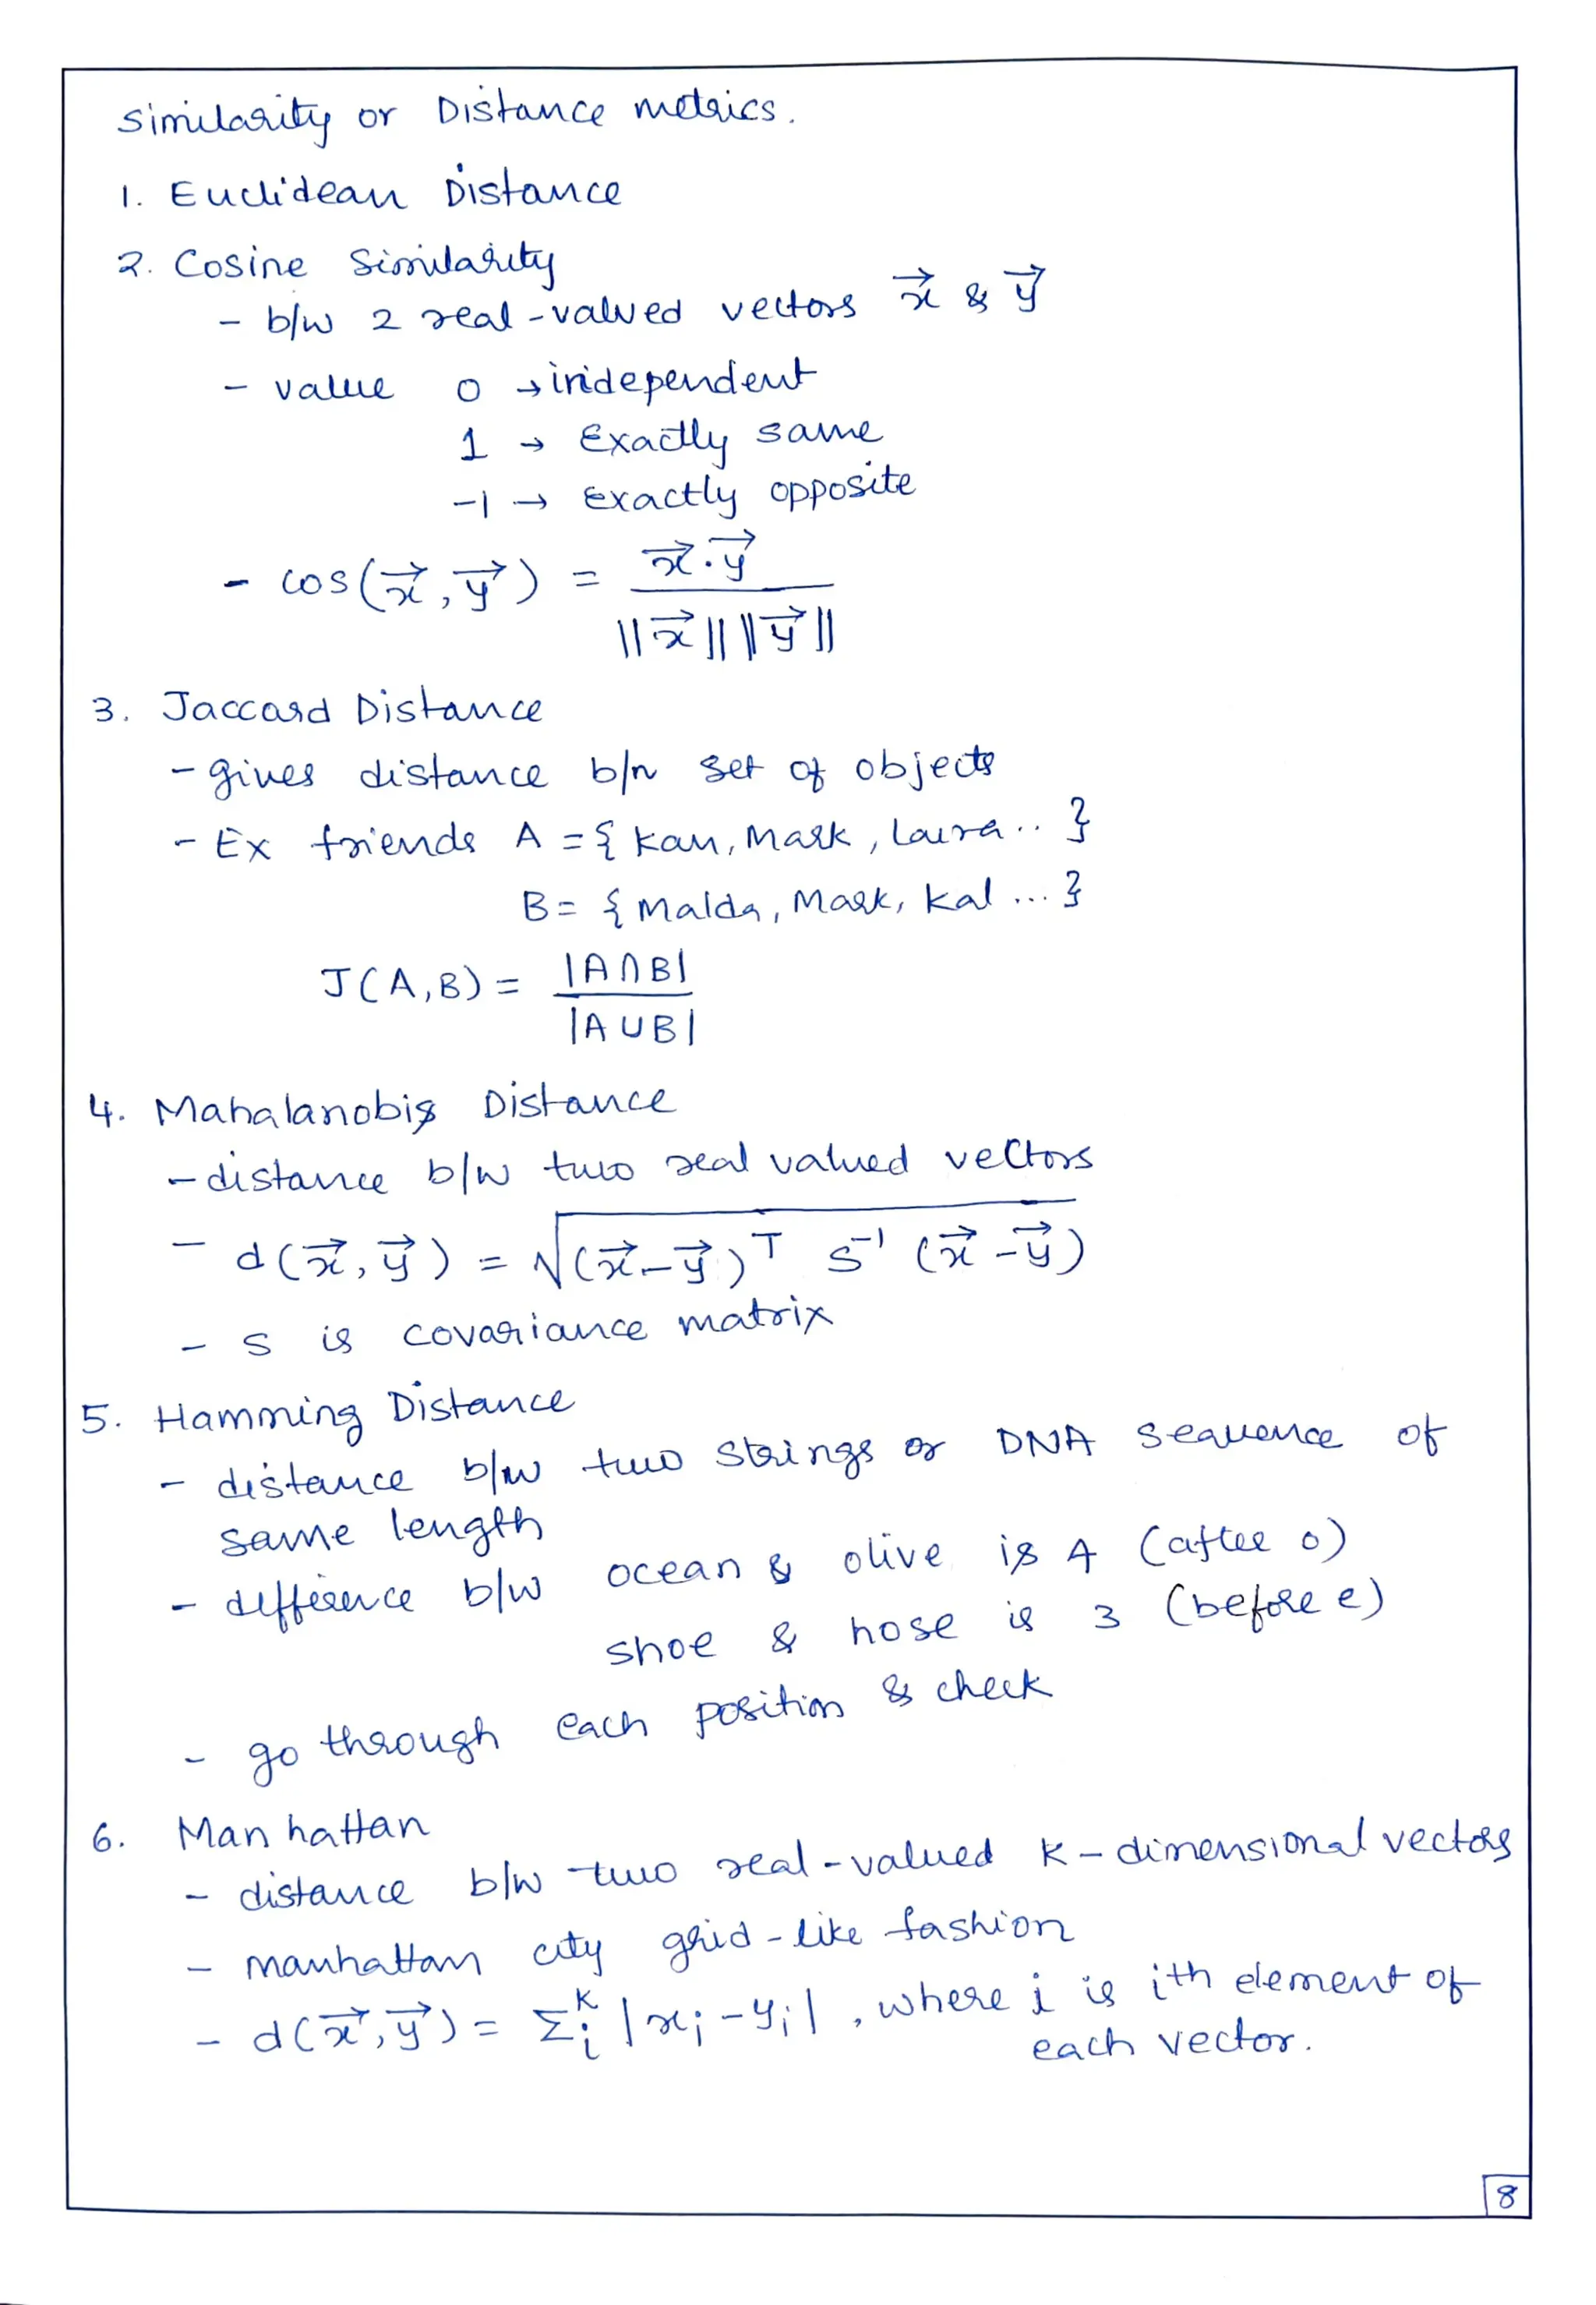 Similarity or Distance metrics.
1. Euclidean Distance
2. Cosine Similarity
- b/w 2 real-valued vectors x⃗ & y⃗
- value 0 → independent
1 → Exactly same
-1 → Exactly opposite
- cos(x⃗, y⃗) = x⃗·y⃗ / ||x⃗|| ||y⃗||
3. Jaccard Distance
- gives distance b/n set of objects
- Ex friends A = { Kan, Mark, Laura .. }
B = { Malda, Mark, Kal ... }
J(A,B) = |A∩B| / |A∪B|
4. Mahalanobis Distance
- distance b/w two real valued vectors
- d(x⃗, y⃗) = √(x⃗-y⃗)ᵀ S⁻¹ (x⃗-y⃗)
- S is covariance matrix
5. Hamming Distance
- distance b/w two strings or DNA sequence of
same length
- difference b/w ocean & olive is 4 (after o)
shoe & hose is 3 (before e)
- go through each position & check
6. Manhattan
- distance b/w two real-valued k-dimensional vectors
- manhattan city grid-like fashion
- d(x⃗, y⃗) = Σᵢᵏ |xᵢ - yᵢ|, where i is ith element of
each vector.
8